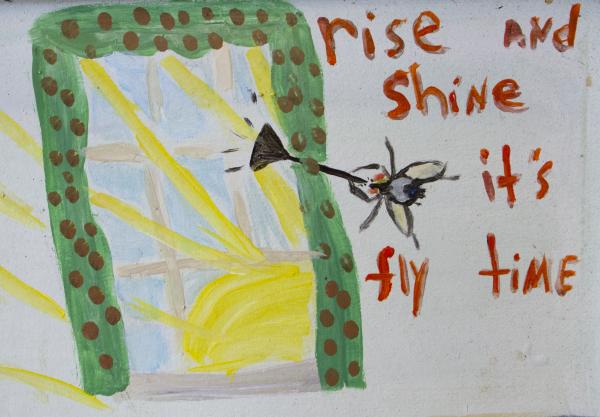 rise AND
shiNE
it's
fly tiME